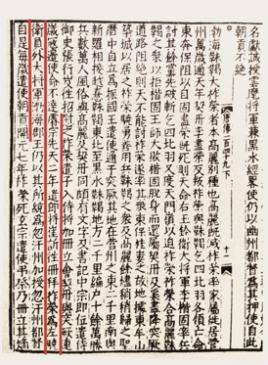 名獻誠授雲麾將軍兼黑水經畧使仍以幽州都督爲其押使自此
朝貢不絶
渤海靺鞨大祚榮者本高麗別種也高麗既滅祚榮率家屬徙居營
州萬歲通天年契丹李盡榮反叛祚榮與靺鞨乞四比羽各領亡命
東奔保阻以自固盡榮既死則天命右玉鈐衛大將軍李楷固率兵
討其餘黨先破斬乞四比羽又度天門嶺以迫祚榮祚榮合高麗靺
鞨之衆以拒楷固王師大敗楷固脫身而還屬契丹及奚盡降突厥
道路阻絶則天不能討祚榮遂率其衆東保桂婁之故地據東牟山
築城以居之祚榮驍勇善用兵靺鞨之衆及高麗餘燼稍稍歸之聖
曆中自立爲振國王遣使通于突厥其地在營州之東二千里南與
新羅相接越熹靺鞨東北至黑水靺鞨地方二千里編戶十餘萬勝
兵數萬人風俗與高麗及契丹同頗有文字及書記中宗即位遣侍
御史張行岌往招慰之祚榮遣子入侍將加冊立會契丹與突厥連
歲寇邊使命不達睿宗先天二年遣郎將崔訢往冊拜祚榮爲左驍
衛員外大將軍渤海郡王仍以其所統爲忽汗州加授忽汗州都督
自是每歲遣使朝貢開元七年祚榮死玄宗遣使弔祭乃冊立其嫡